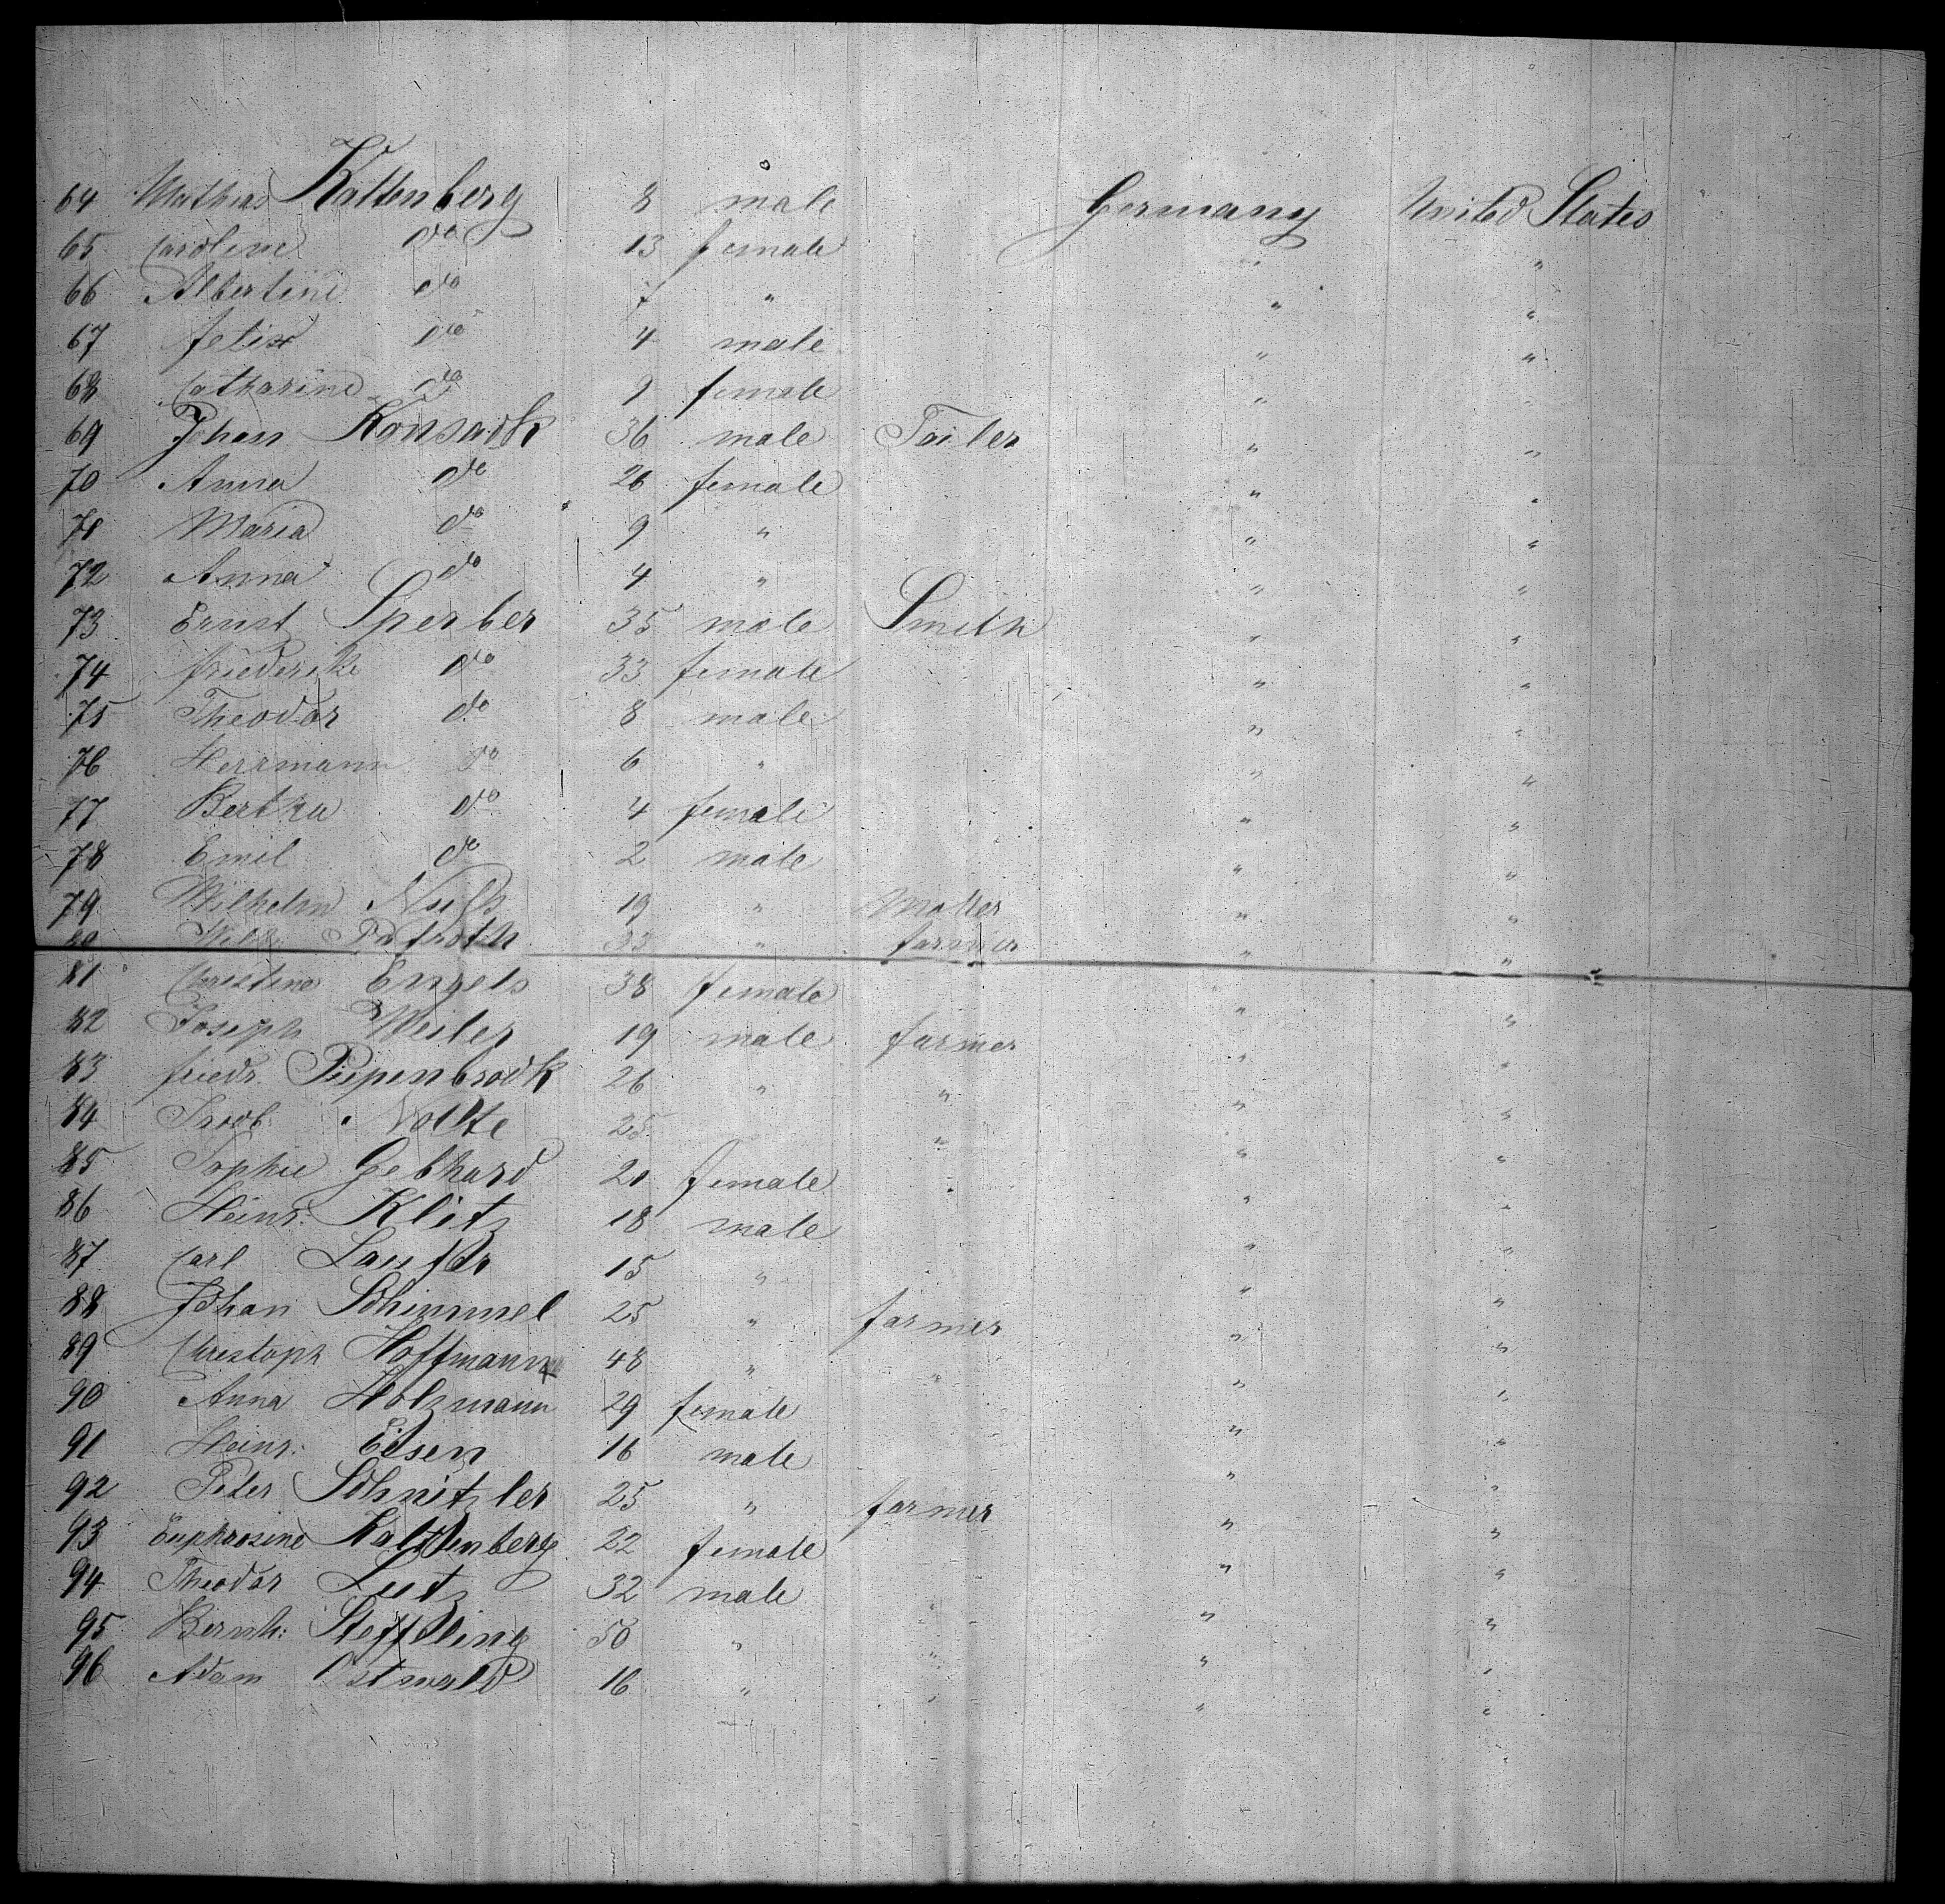 64 Mathias Kaltenberg 8 male Germany United States
65 Caroline do 13 female " "
66 Albertine do 7 " " "
67 Felix do 4 male " "
68 Catharine do 9 female " "
69 Johan Konsack 36 male Tailer " "
70 Anna do 26 female " "
71 Maria do 9 " " "
72 Anna do 4 " " "
73 Ernst Sperber 35 male Smith " "
74 Friederike do 33 female " "
75 Theodor do 8 male " "
76 Herrmann do 6 " " "
77 Bertha do 4 female " "
78 Emil do 2 male " "
79 Wilhelm 19 " " "
80 Wilh. 33 " farmer " "
81 Christine Engels 38 female " "
82 Joseph Weiler 19 male farmer " "
83 Friedr. Piepenbrock 26 " " " "
84 Jacob Nolte 25 " " "
85 Sophie Gebhard 20 female " " "
86 Heinr. Klitz 18 male " "
87 Carl 15 " " "
88 Johan Schimmel 25 " farmer " "
89 Christoph Hoffmann 48 " " " "
90 Anna Holzmann 29 female " "
91 Heinr. Eisen 16 male " "
92 Peter Schnitzler 25 " farmer " "
93 Euphrosine Kaltenberg 22 female " "
94 Theodor Lutz 32 male " " "
95 Bernh: 50 " " " "
96 Adam Ostwald 16 " " " "